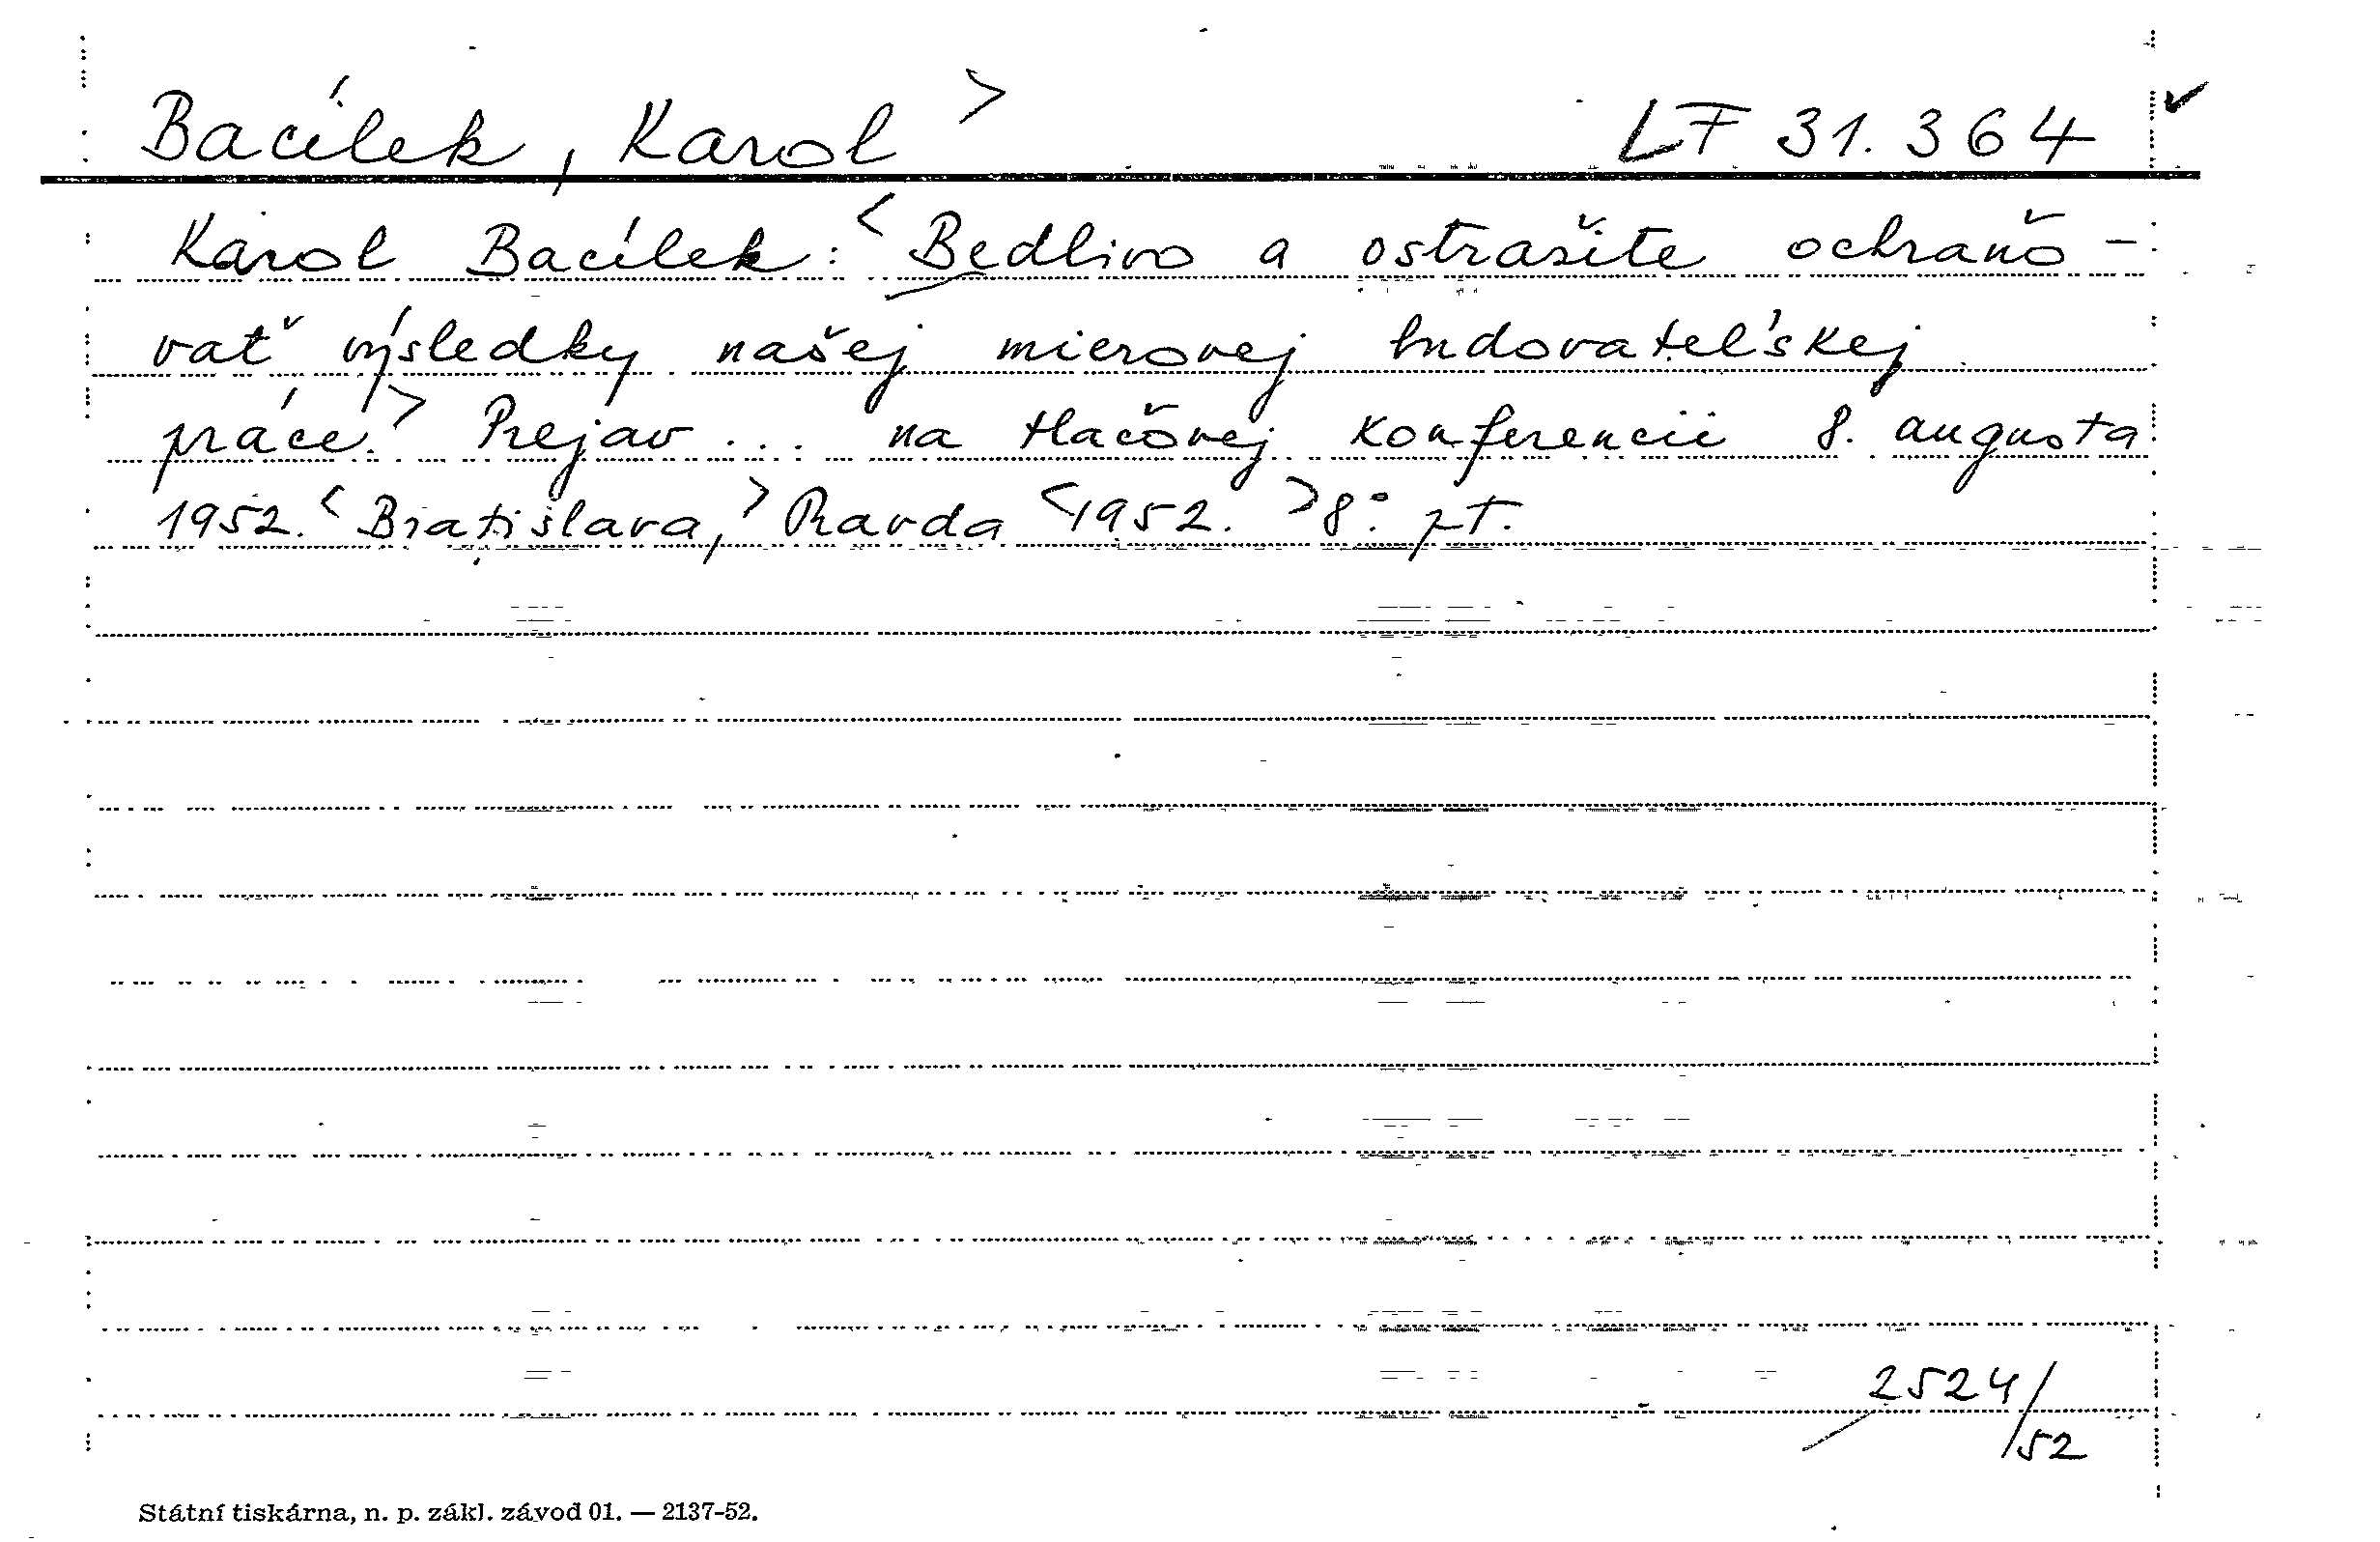 Bacílek, Karol > LF 31.364 ✓
Karol Bacílek: < Bedlivo a ostražite ochraňo-
vať výsledky našej mierovej budovateľskej
práce. > Prejav ... na tlačovej konferencii 8. augusta
1952. < Bratislava, > Pravda < 1952. > 8° pt.
2524/
52
Státní tiskárna, n. p. zákl. závod 01. — 2137-52.